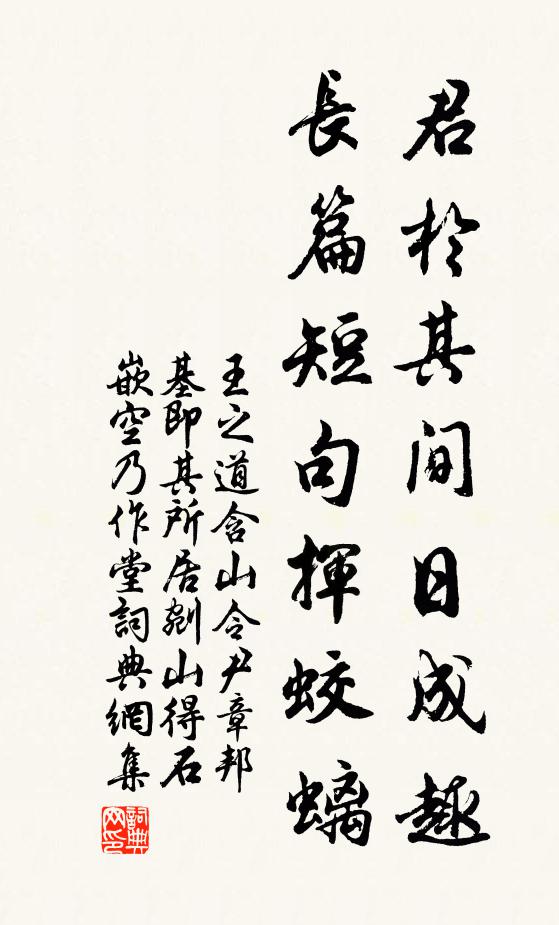 君於其間日成趣
長篇短句揮蛟螭
王之道含山令尹章邦
基即其所居剜山得石
嵌空乃作堂詞典網集
詞典
网印